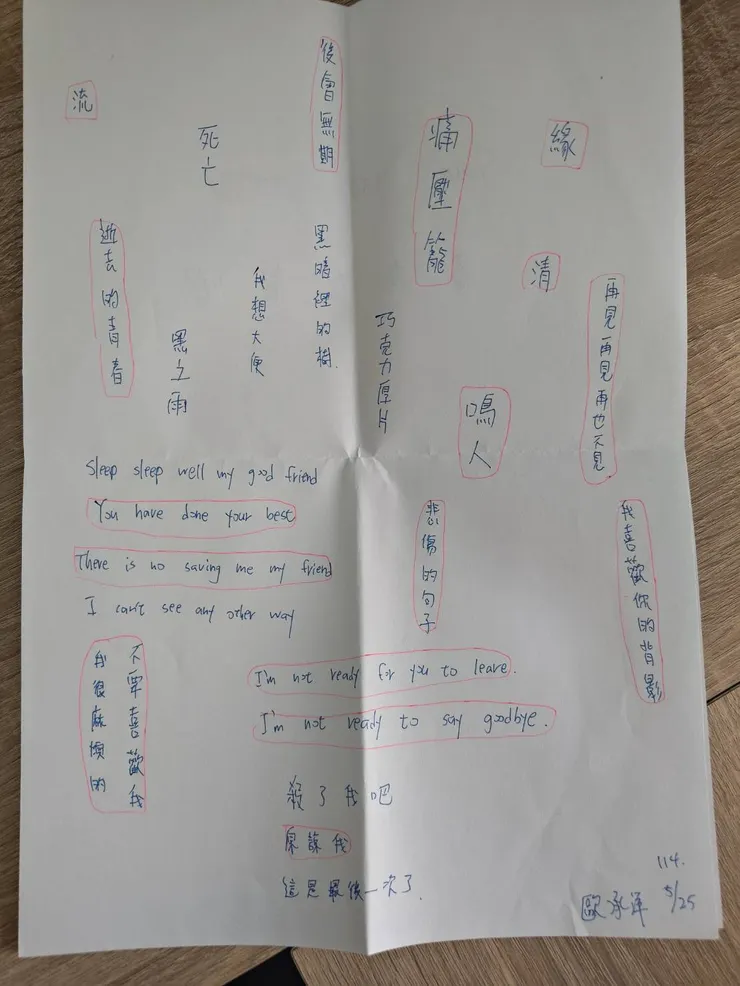 後會無期
流
死亡
痛壓籠
緣
逝去的青春
黑暗裡的樹.
清
我想大便
再見再見再也不見
巧克力厚片
黑之雨
鳴人
Sleep sleep well my good friend
You have done your best
There is no saving me my friend
I can't see any other way
悲傷的句子
我喜歡你的背影
不要喜歡我
我很麻煩的
I'm not ready for you to leave.
I'm not ready to say goodbye.
殺了我吧
原諒我
這是最後一次了.
114.
5/25
歐承洋